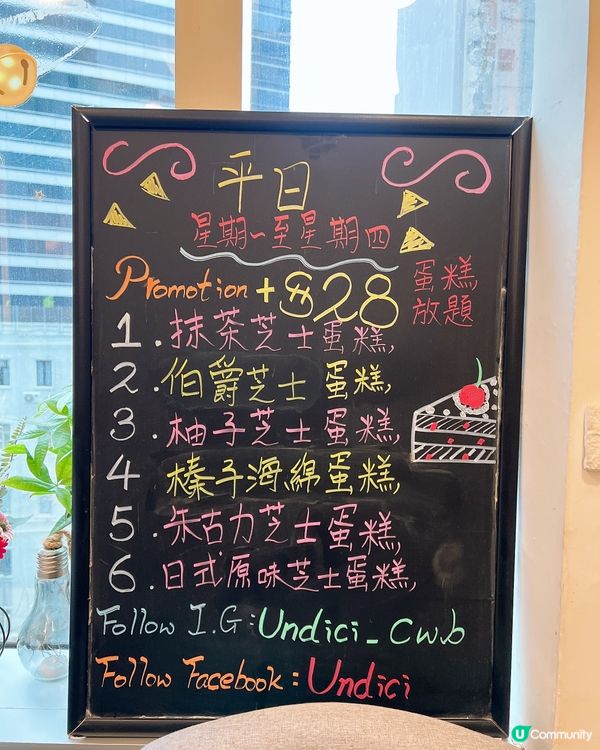 平日
星期一至星期四
Promotion + $28 蛋糕放題
1. 抹茶芝士蛋糕
2. 伯爵芝士蛋糕
3. 柚子芝士蛋糕
4 榛子海綿蛋糕
5. 朱古力芝士蛋糕
6. 日式原味芝士蛋糕
Follow I.G: Undici_cwb
Follow Facebook: Undici
U Community